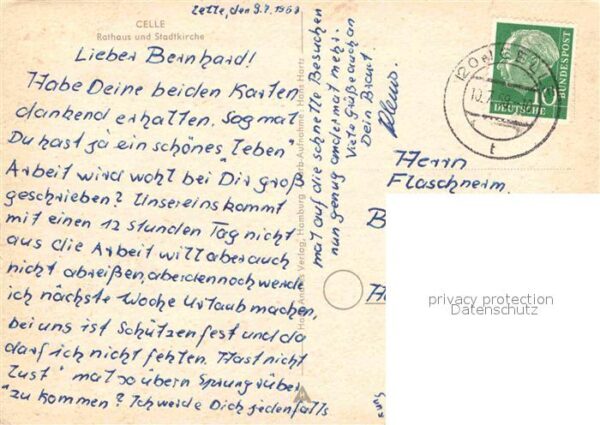 CELLE
Rathaus und Stadtkirche
Celle, den 9.7.
Lieber Bernhard!
Habe Deine beiden Karten
dankend erhalten, Sag mal
Du hast ja ein schönes Leben"
Arbeit wird wohl bei Dir groß
geschrieben? Unsereins kommt
mit einen 12 stunden Tag nicht
aus die Arbeit will aber auch
nicht abreißen, aber dennoch werde
ich nächste Woche Urlaub machen,
bei uns ist Schützenfest und da
darf ich nicht fehlen. Hast nicht
Lust" mal so übern Sprung rüber
"zu kommen? Ich werde Dich jedenfalls
mal auf die schnelle Besuchen
nun genug andermal mehr.
Viele Grüße auch an
Dein Braut
Hans Andres Verlag, Hamburg Farb-Aufnahme: Hans Hartz
CELLE
10.7.
t
10
DEUTSCHE
BUNDESPOST
Herrn
Flaschnerm.
B
privacy protection
Datenschutz